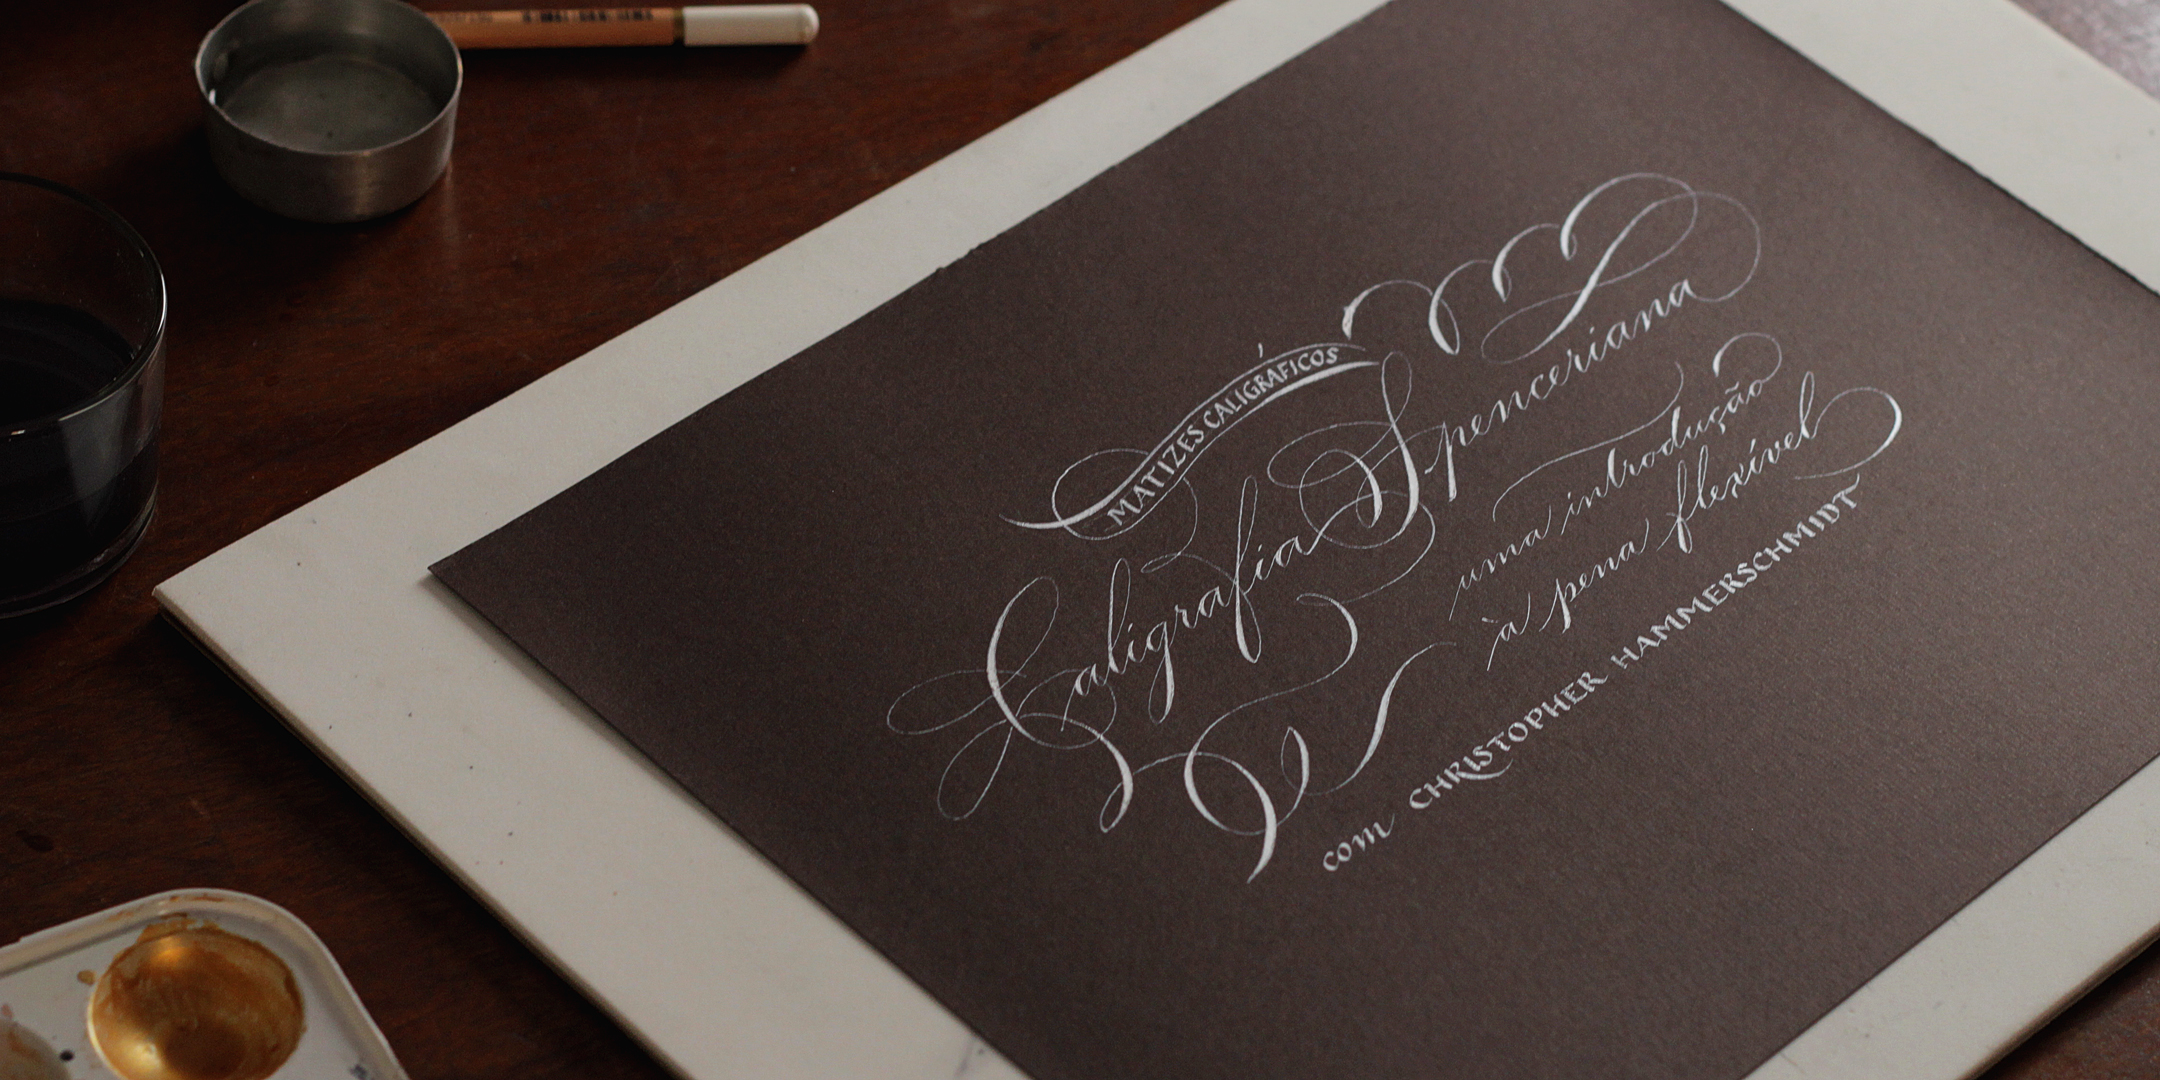 MATIZES CALIGRÁFICOS
Caligrafia Spenceriana
uma introdução
à pena flexível
com CHRISTOPHER HAMMERSCHMIDT